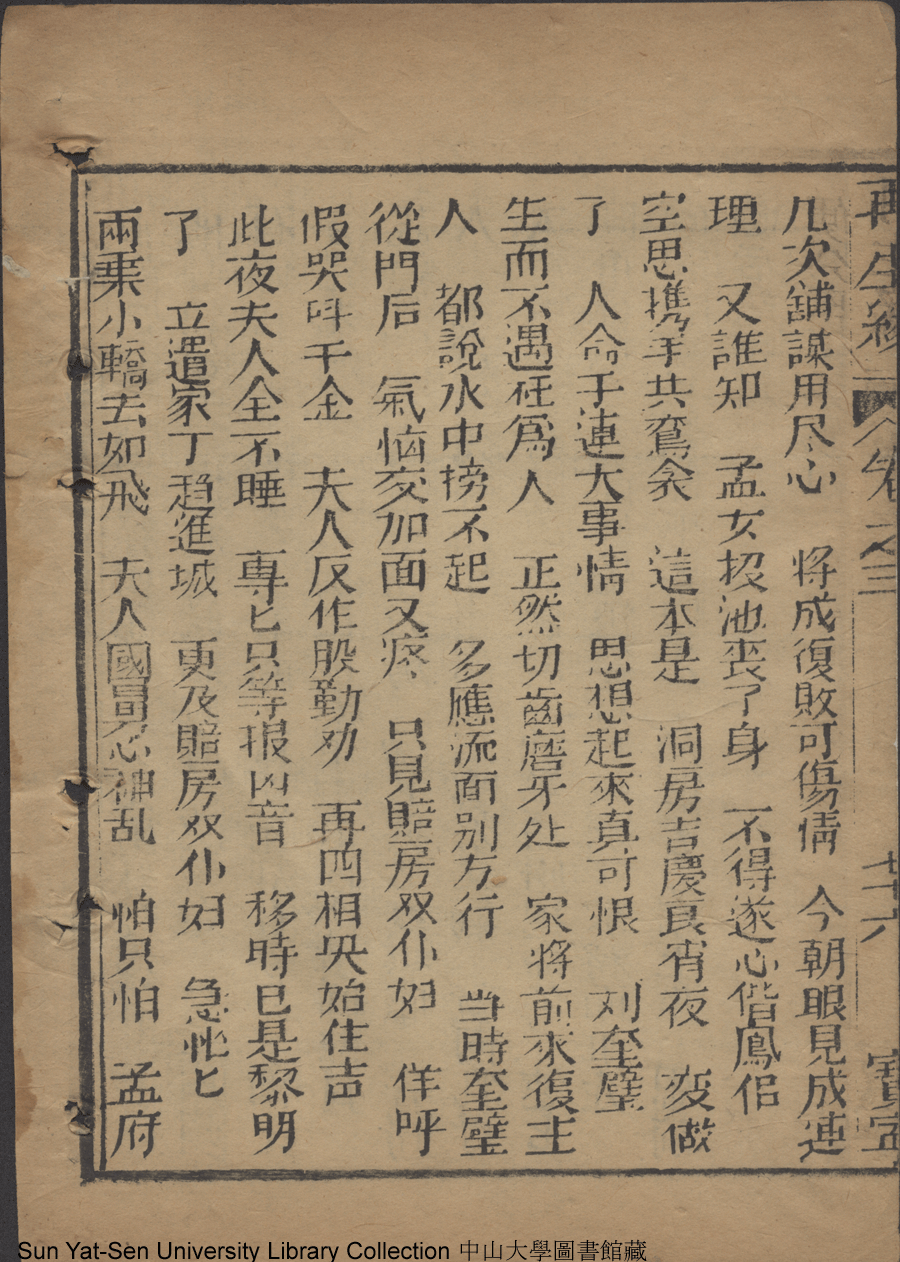 再生緣 卷之三 廿六 寶寧
几次鋪謀用尽心 将成復敗可傷情 今朝眼見成連
理 又誰知 孟女投池丧了身 不得遂心偕鳳侣
空思携手共鴛衾 這本是 洞房吉慶良宵夜 変做
了 人命干連大事情 思想起來真可恨 刘奎璧
生而不遇枉爲人 正然切齒磨牙处 家将前來復主
人 都說水中捞不起 多應流面别方行 当時奎璧
從門后 氣恼交加面又疼 只見賠房双仆妇 佯呼
假哭呌千金 夫人反作殷勤劝 再四相央始住声
此夜夫人全不睡 專匕只等报凶音 移時已是黎明
了 立遣家丁趋進城 更及賠房双仆妇 急忙匕
兩乗小轎去如飛 夫人國冒忍神乱 怕只怕 孟府
Sun Yat-Sen University Library Collection 中山大學圖書館藏